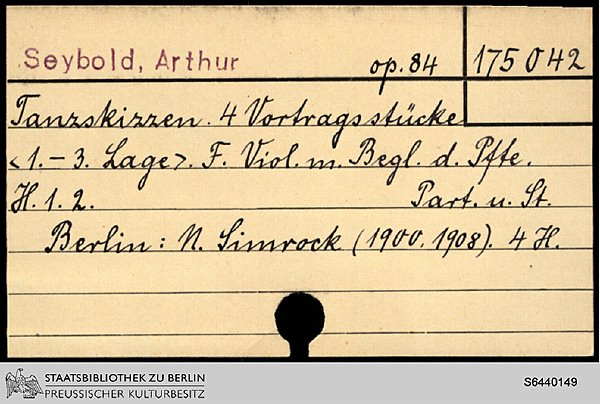 Seybold, Arthur op. 84 175 042
Tanzskizzen. 4 Vortragsstücke
<1.-3. Lage>. F. Viol. m. Begl. d. Pfte.
H. 1. 2. Part. u. St.
Berlin: N. Simrock (1900. 1908). 4 H.
STAATSBIBLIOTHEK ZU BERLIN
PREUSSISCHER KULTURBESITZ
S6440149